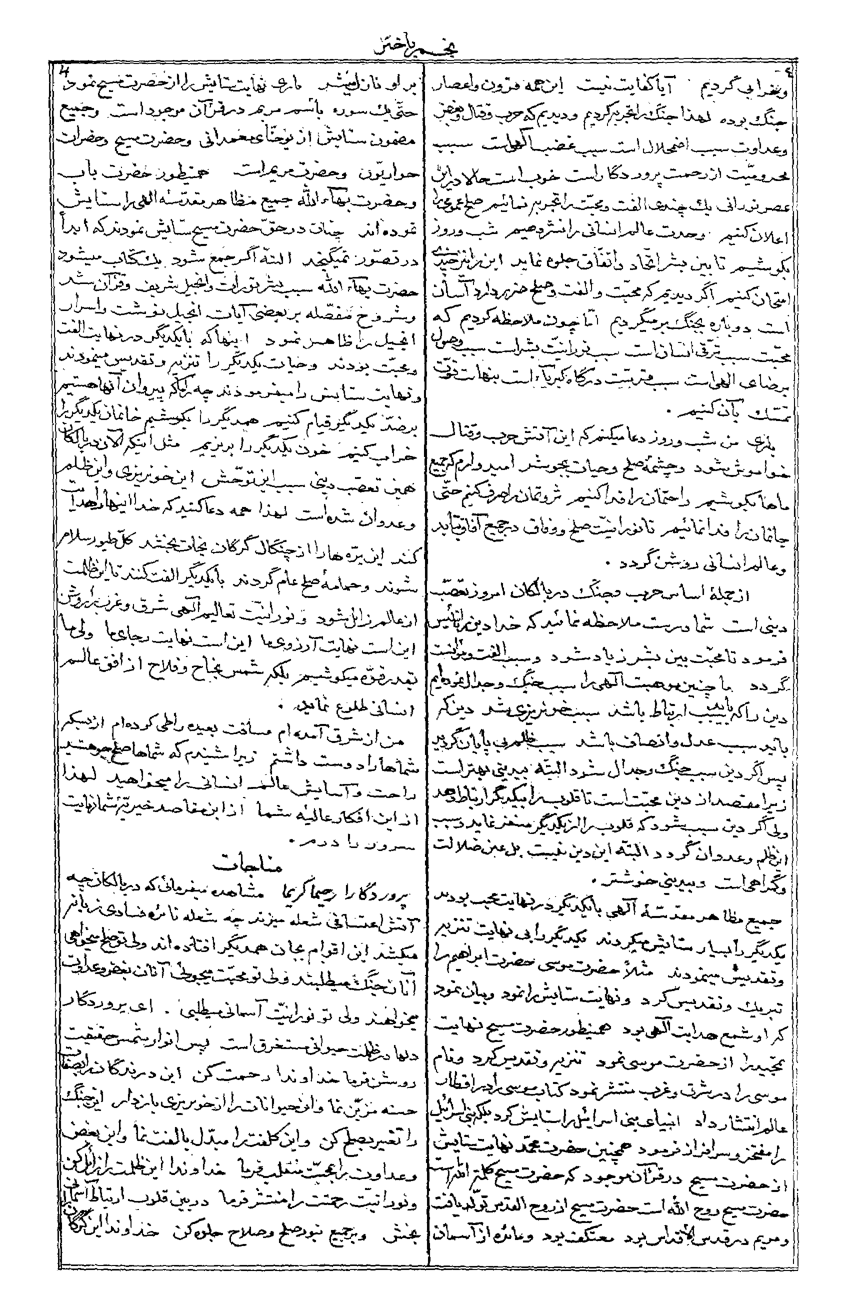 نجم باختر
۴
وبقرابی گردیم آیا کفایت نیست این همه قرون و اعصار
جنگ بوده لهذا جنگ را تجربه کردیم و دیدیم که حرب و قتال و بغض
و عداوت سبب اضمحلال است سبب غضب الهی است سبب
محرومیّت از رحمت پروردگار است خوب است حالا در این
عصر نورانی یک چندی الفت و محبّت را تجربه نمائیم صلح عمومی را
اعلان کنیم وحدت عالم انسانی را نشر دهیم شب و روز
بکوشیم تا بین بشر اتّحاد و اتّفاق جلوه نماید این را نیز چندی
امتحان کنیم اگر دیدیم که محبّت و الفت و صلح ضرر دارد آسان
است دوباره بجنگ برمیگردیم امّا چون ملاحظه کردیم که
محبّت سبب ترقی انسان است سبب نورانیّت بشر است سبب وصول
برضای الهی است سبب قربیّت درگاه کبریاء است بنهایت قوّت
تمسّک بآن کنیم .
باری من شب و روز دعا میکنم که این آتش حرب و قتال
خواموش بشود و چشمهٔ صلح و حیات بجوشد امیدوارم که جمیع
ماها بکوشیم راحتمان را فدا کنیم ثروتمان را صرف کنیم حتّی
جانمان را فدا نمائیم تا نورانیّت صلح و وفاق در جمیع آفاق بتابد
و عالم انسانی روشن گردد .
از جمله اساس حرب و جنگ در بالکان امروز تعصّب
دینی است شما درست ملاحظه نمائید که خدا دین را تأسیس
فرمود تا محبّت بین بشر زیاد شود و سبب الفت و مؤانست
گردد ما چنین موهبت الهی را سبب جنگ و جدال نموده‌ایم
دین را که باید سبب ارتباط باشد سبب خونریزی شد دین که
باید سبب عدل و انصاف باشد سبب ظلم بی پایان گردید
پس اگر دین سبب جنگ و جدال شود البته بیدینی بهتر است
زیرا مقصد از دین محبّت است تا قلوب را بیکدیگر ارتباط دهد
ولی اگر دین سبب شود که قلوب را از یکدیگر متنفّر نماید و سبب
این ظلم و عدوان گردد البتّه این دین نیست بل عین ضلالت
و گمراهی است و بیدینی خوشتر .
جمیع مظاهر مقدّسهٔ الهی بایکدیگر در نهایت محبّت بودند
یکدیگر را بسیار ستایش میکردند یکدیگر را بی نهایت تنزیه
و تقدیس مینمودند مثلاً حضرت موسی حضرت ابراهیم را
تبریک و تقدیس کرد و نهایت ستایش را نمود و بیان نمود
که او شمع هدایت الهی بود همینطور حضرت مسیح نهایت
تمجید را از حضرت موسی نمود تنزیه و تقدیس کرد و نام
موسی را در شرق و غرب منتشر نمود کتاب موسی را در اقطار
عالم انتشار داد انبیاء بنی اسرائیل را ستایش کرد بلکه بنی اسرائیل
را مفتخر و سرافراز فرمود همچنین حضرت محمّد نهایت ستایش
از حضرت مسیح در قرآن موجود که حضرت مسیح کلمة الله است
حضرت مسیح روح الله است حضرت مسیح از روح القدس تولّد یافت
و مریم در قدس الاقداس بود معتکف بود و مائده از آسمان
۴
بر او نازل میشد باری نهایت ستایش را از حضرت مسیح نمود
حتّی یک سوره باسم مریم در قرآن موجود است و جمیع
مضمون ستایش از یوحنّای معمدانی و حضرت مسیح و حضرات
حواریّون و حضرت مریم است همینطور حضرت باب
و حضرت بهاءالله جمیع مظاهر مقدّسه الهی را ستایش
نموده اند چنان در حقّ حضرت مسیح ستایش نمودند که ابداً
در تصوّر نمیگنجد البتّه اگر جمع شود یک کتاب میشود
حضرت بهاءالله سبب نشر تورات و انجیل شریف و قرآن شد
و شروح مفصّله بر بعضی آیات انجیل نوشت و اسرار
انجیل را ظاهر نمود اینها که بایکدیگر در نهایت الفت
و محبّت بودند و حیات یکدیگر را تنزیه و تقدیس مینمودند
و نهایت ستایش را میفرمودند چرا ما که پیروان آنها هستیم
بر ضدّ یکدیگر قیام کنیم همدیگر را بکوشیم خانمان یکدیگر را
خراب کنیم خون یکدیگر را بریزیم مثل اینکه الآن در بالکان
همین تعصّب دینی سبب این توحّش این خونریزی و این ظلم
و عدوان شده است لهذا همه دعا کنید که خدا اینها را هدایت
کند این برّه‌ها را از چنگال گرگان نجات بخشد کلّ طیور سلام
شوند و حمامهٔ صلح عام گردند بایکدیگر الفت کنند تا این ظلمت
از عالم زائل شود و نورانیّت تعالیم الهی شرق و غرب را روشن
این است نهایت آرزوی ما این است نهایت رجای ما ولی ما
بقدر قوّه میکوشیم بلکه شمس نجاح و فلاح از افق عالم
انسانی طلوع نماید .
من از شرق آمده‌ام مسافت بعیده را طی کرده‌ام از بسکه
شماها را دوست داشتم زیرا شنیدم که شماها صلح جو هستید
راحت و آسایش عالم انسانی را میخواهید لهذا
از این افکار عالیه شما از این مقاصد خیریّهٔ شما نهایت
سرور را دارم .
مناجات
پروردگارا رحیما کریما مشاهده میفرمائی که در بالکان چه
آتش اعتسافی شعله میزند چه شعله نائره فسادی زبانه
میکشد این اقوام بجان همدیگر افتاده اند ولی تو صلح میخواهی
آنان جنگ میطلبند ولی تو محبّت میجوئی آنان بغض و عداوت
میخواهند ولی تو نورانیّت آسمانی میطلبی . ای پروردگار
دلها در ظلمت حیوانی مستغرق است پس انوار شمس حقیقت
روشن فرما خداوندا رحمت کن این درندگان را بصفات
حسنه مزیّن نما و این حیوانات را از خونریزی بازدار این جنگ
را تغییر بصلح کن و این کلفت را مبدّل بالفت نما و این بغض
و عداوت را بمحبّت منقلب فرما خداوندا این ظلمت را زائل کن
و نورانیّت رحمتت را منتشر فرما در بین قلوب ارتباط آسمانی
بخش و بر جمیع بنور صلح و صلاح جلوه کن خداوندا این گرگان